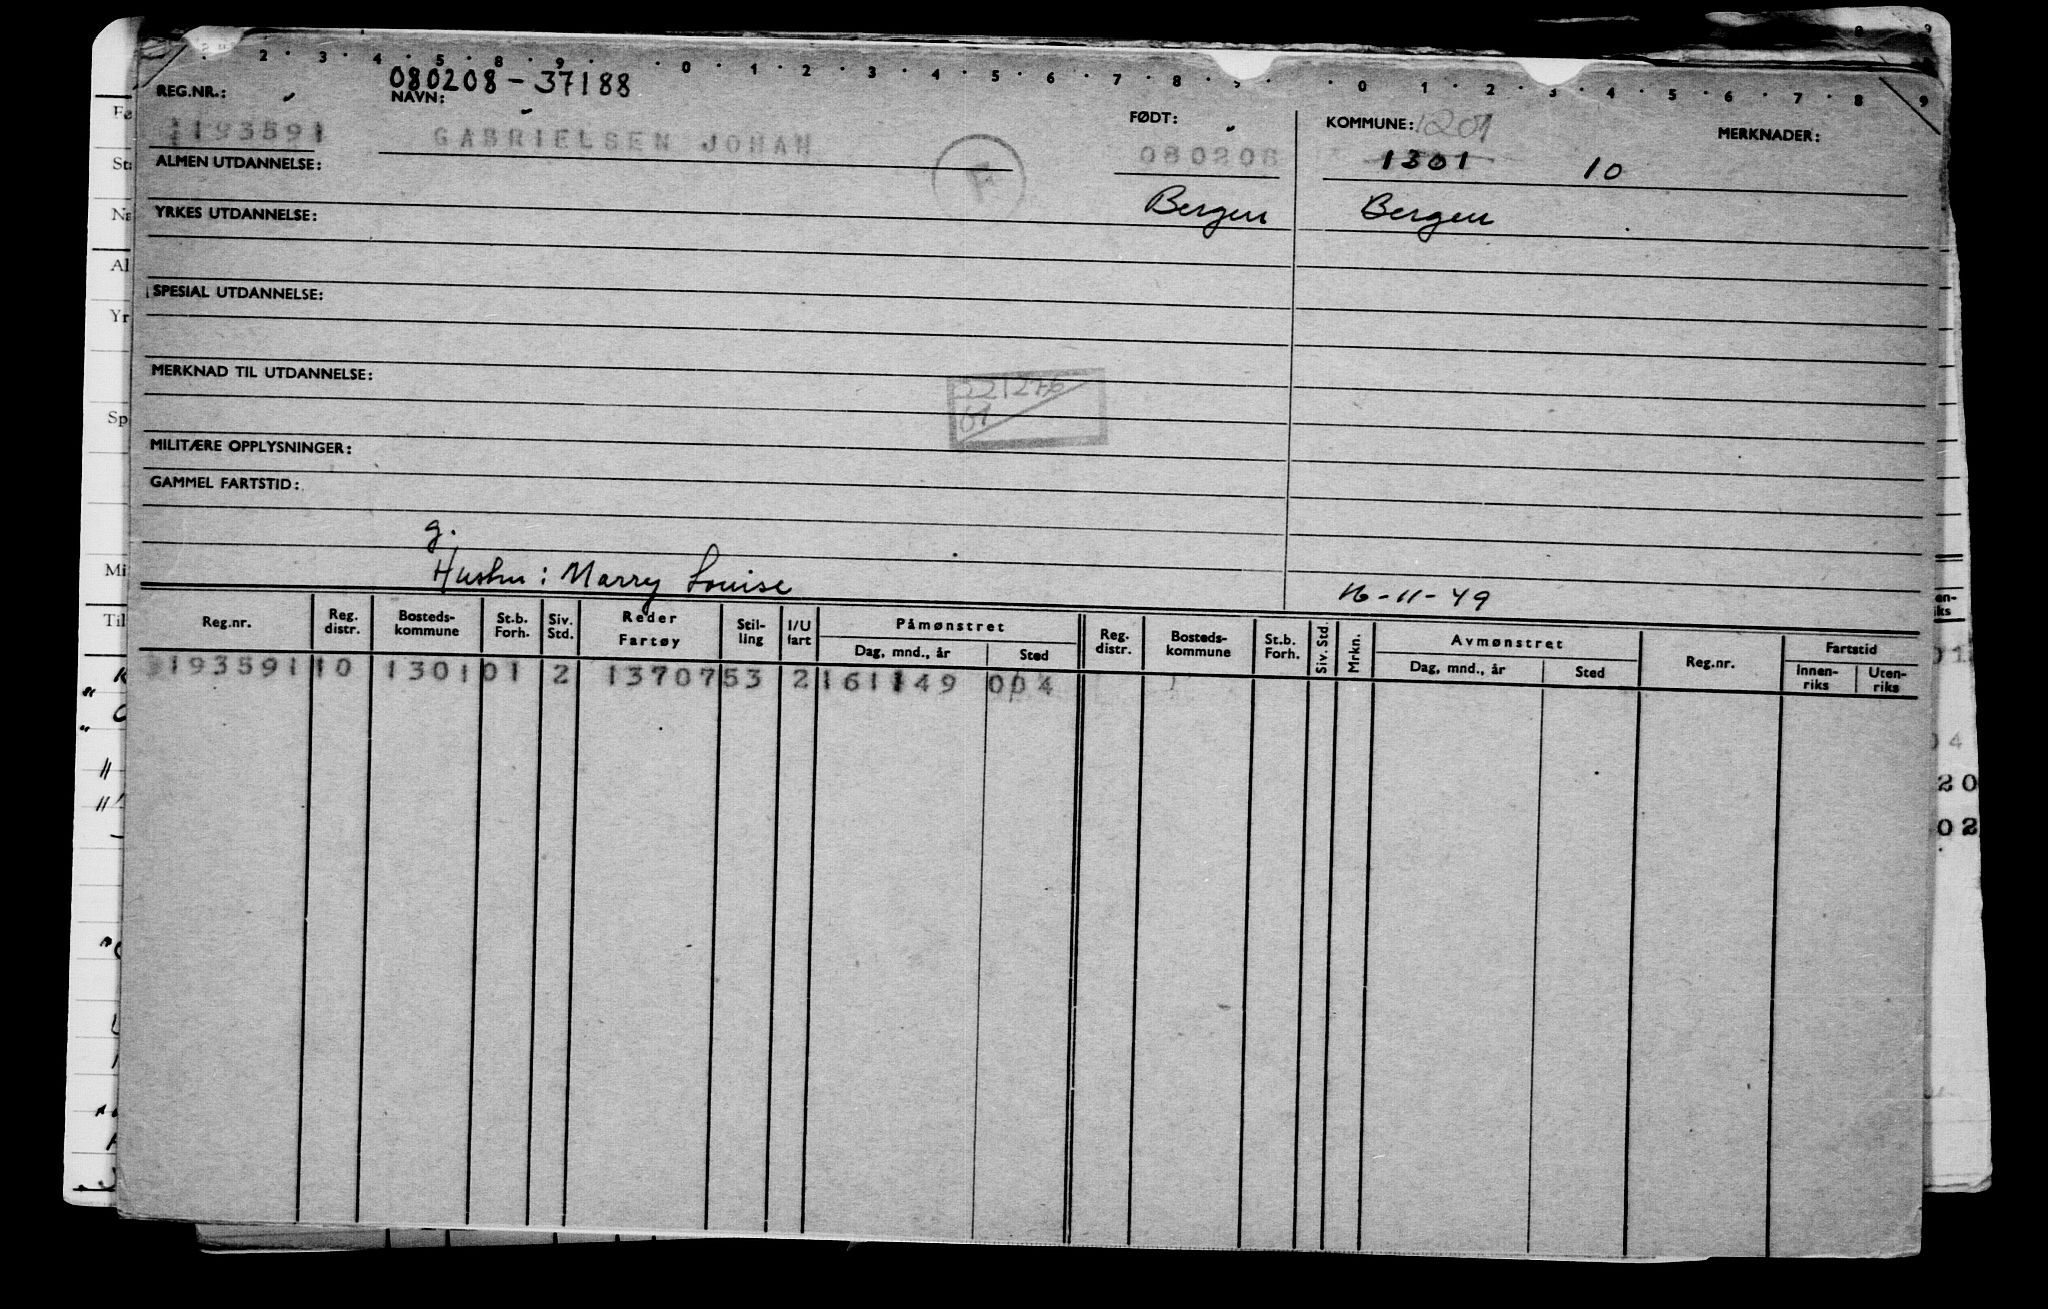 2 · 3 · 4 · 5 · 8 · 9 · · 0 · 1 · 2 · 3 · 4 · 5 · 6 · 7 · 8 · 9 · · 0 · 1 · 2 · 3 · 4 · 5 · 6 · 7 · 8 · 9
080208 - 37188
REG.NR.: NAVN: FØDT: KOMMUNE: 1201 MERKNADER:
193591 GABRIELSEN JOHAN 080208 1301 10
ALMEN UTDANNELSE: F
Bergen Bergen
YRKES UTDANNELSE:
SPESIAL UTDANNELSE:
MERKNAD TIL UTDANNELSE:
221276
MILITÆRE OPPLYSNINGER:
GAMMEL FARTSTID:
g.
Hustru: Marry Louise
16-11-49
Reg.nr. Reg. distr. Bosteds-kommune St.b. Forh. Siv. Std. Reder Fartøy Stil-ling I/U fart Påmønstret Dag, mnd., år Sted Reg. distr. Bosteds-kommune St.b. Forh. Siv. Std. Mrkn. Avmønstret Dag, mnd., år Sted Reg.nr. Fartstid Innen-riks Uten-riks
193591 10 1301 01 2 13707 53 2 161149 004